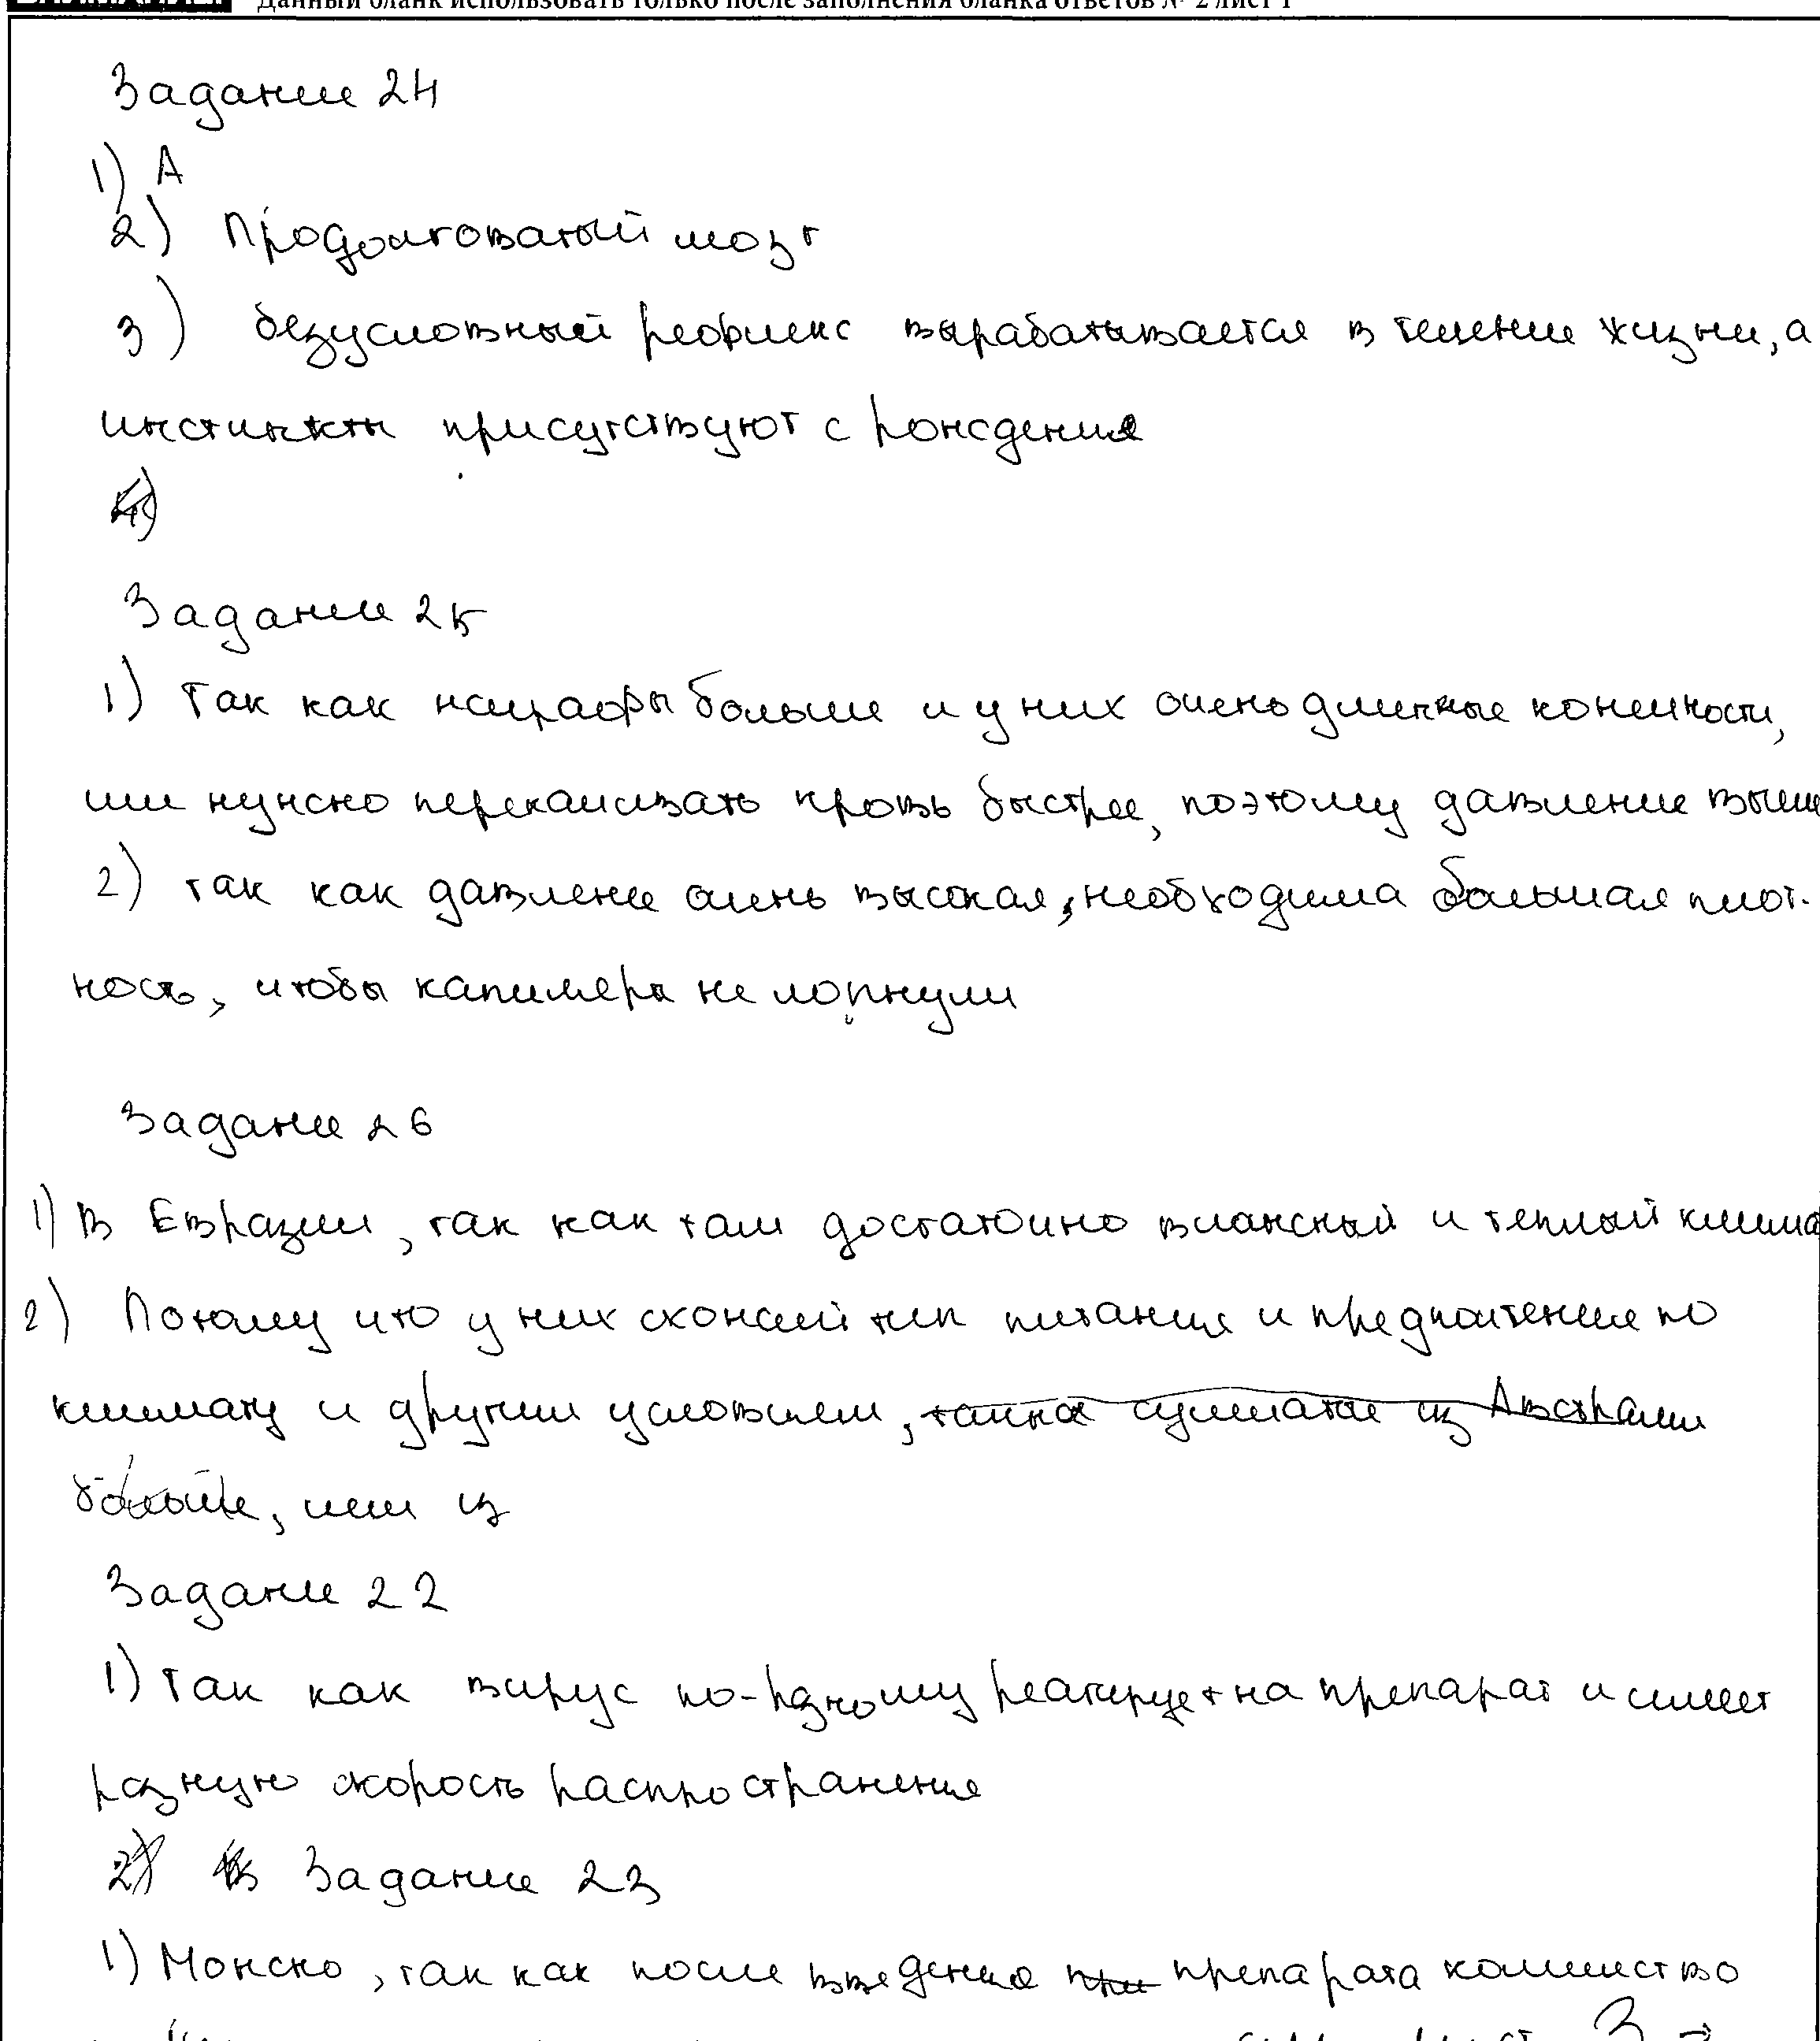 Данный бланк использовать только после заполнения бланка ответов № 2 лист 1
Задание 24
1) А
2) Продолговатый мозг
3) безусловный рефлекс вырабатывается в течение жизни, а
инстинкты присутствуют с рождения
4)
Задание 25
1) Так как жирафы больше и у них очень длинные конечности,
им нужно перекачивать кровь быстрее, поэтому давление выше
2) так как давлене очень высокая, необходима большая плот-
ность, чтобы капиляры не лопнули
Задание 26
1) В Евразии, так как там достаточно влажный и теплый клима
2) Потому что у них схожий тип питания и предпочтения по
климату и другим условиям, также сумчатые из Австралии
больше, чем из
Задание 22
1) Так как вирус по-рзному реагирует на препарат и имеет
разную скорость распространения
2) Задание 23
1) Можно, так как после введения при препарата количество